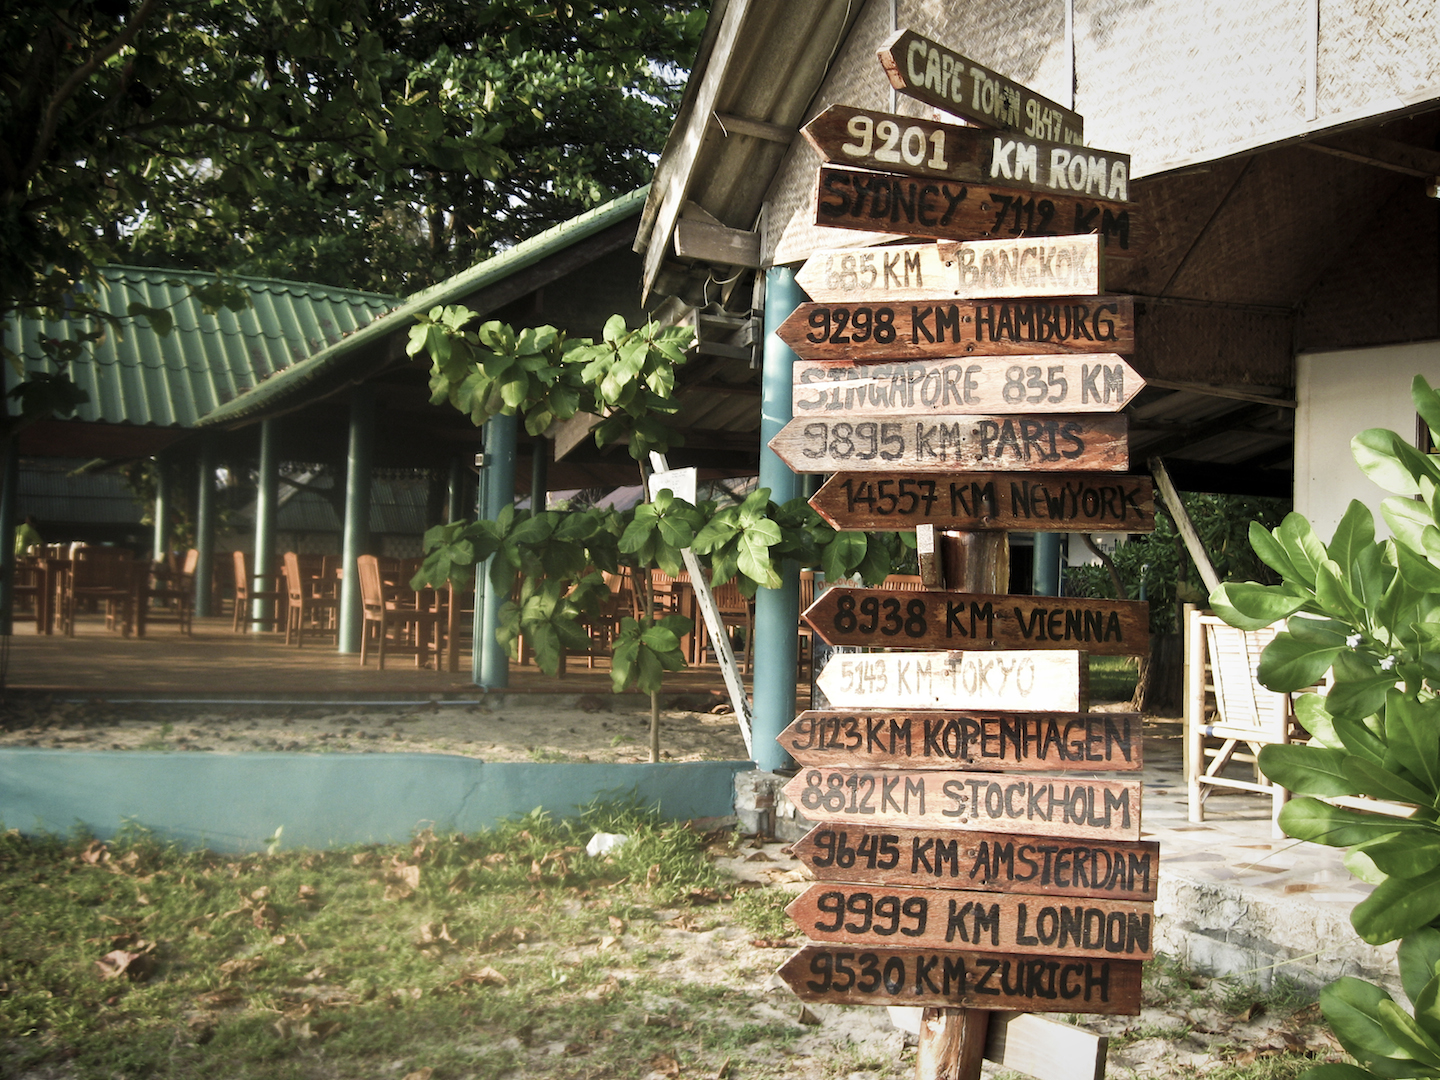 CAPE TOWN 9647 KM
9201 KM ROMA
SYDNEY 7112 KM
685 KM BANGKOK
9298 KM HAMBURG
SINGAPORE 835 KM
9895 KM PARIS
14557 KM NEWYORK
8938 KM VIENNA
5143 KM TOKYO
9123 KM KOPENHAGEN
8812 KM STOCKHOLM
9645 KM AMSTERDAM
9999 KM LONDON
9530 KM ZURICH